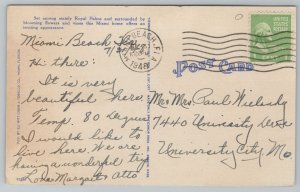 Set among stately Royal Palms and surrounded by
blooming flowers and vines this Miami home offers an
inviting appearance.
Miami Beach, Fla.
Hi there:
It is very
beautiful here
Temp. 80 Degrees
I would like to
live here. We are
having a wonderful trip
Love Margaret & Otto
MIAMI BEACH, FLA.
POST CARD
Mr & Mrs. Paul Wielusky
7440 University Dr
University City Mo.